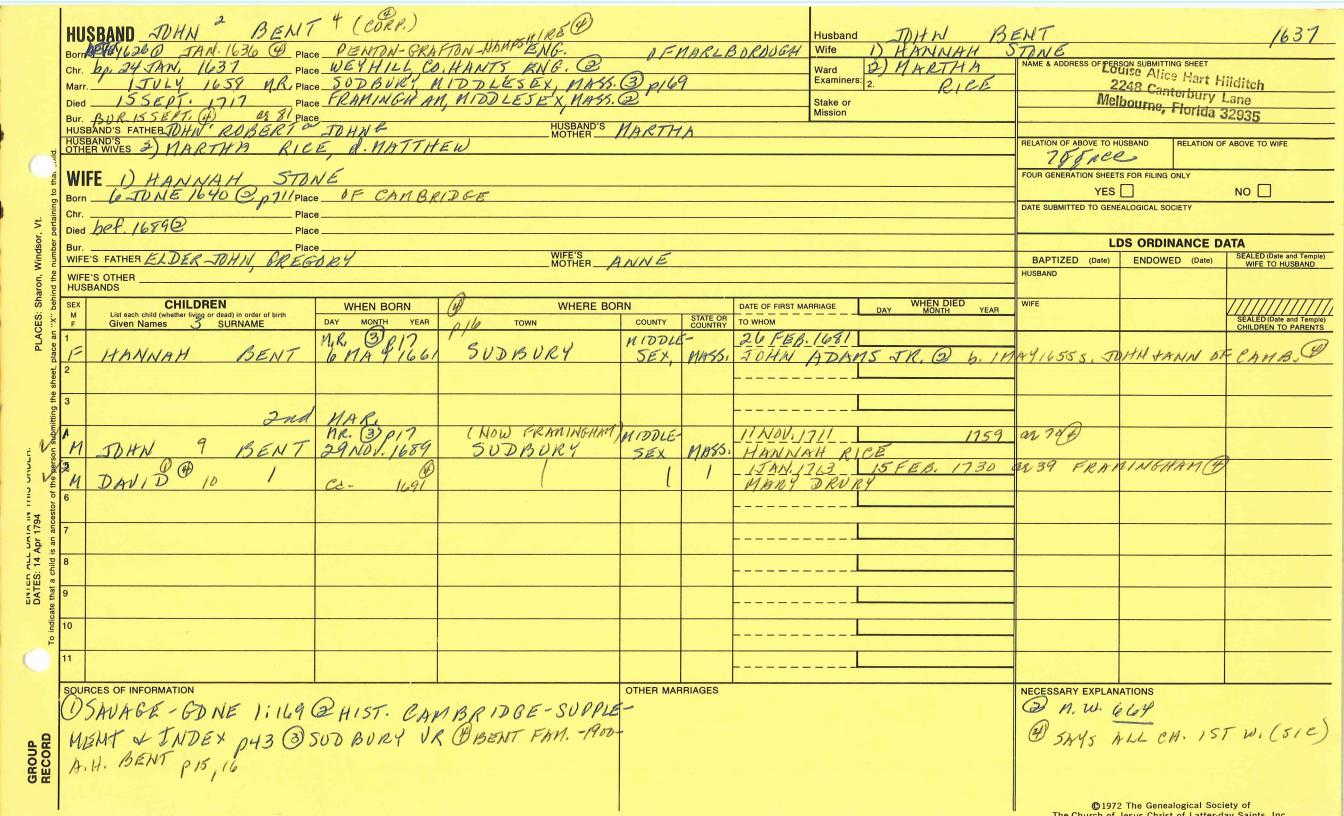 HUSBAND JOHN 2 BENT 4 (CORP.) ④
Born JAN. 1636 ④ Place PENTON-GRAFTON-HAMPSHIRE ④ ENG. OF MARLBOROUGH
Chr. bp. 24 JAN, 1637 Place WEYHILL CO, HANTS ENG. ②
Marr. 1 JULY 1658 M.R. Place SUDBURY, MIDDLESEX, MASS. ③ p169
Died 15 SEPT. 1717 Place FRAMINGHAM, MIDDLESEX, MASS. ②
Bur. BUR. 15 SEPT. ④ æ 81 Place
HUSBAND'S FATHER JOHN ROBERT JOHN HUSBAND'S MOTHER MARTHA
HUSBAND'S OTHER WIVES 2) MARTHA RICE, d. MATTHEW
Husband JOHN BENT 1637
Wife 1) HANNAH STONE
Ward Examiners: 2) MARTHA
2. RICE
Stake or Mission
NAME & ADDRESS OF PERSON SUBMITTING SHEET
Louise Alice Hart Hilditch
2248 Canterbury Lane
Melbourne, Florida 32935
RELATION OF ABOVE TO HUSBAND RELATION OF ABOVE TO WIFE
FOUR GENERATION SHEETS FOR FILING ONLY
YES NO
DATE SUBMITTED TO GENEALOGICAL SOCIETY
WIFE 1) HANNAH STONE
Born 6 JUNE 1640 ② p711 Place OF CAMBRIDGE
Chr. Place
Died bef. 1689 ② Place
Bur. Place
WIFE'S FATHER ELDER JOHN, GREGORY WIFE'S MOTHER ANNE
WIFE'S OTHER HUSBANDS
LDS ORDINANCE DATA
BAPTIZED (Date) ENDOWED (Date) SEALED (Date and Temple) WIFE TO HUSBAND
HUSBAND
WIFE
SEALED (Date and Temple) CHILDREN TO PARENTS
SEX M F
CHILDREN
List each child (whether living or dead) in order of birth
Given Names 3 SURNAME
WHEN BORN
DAY MONTH YEAR
④ p16
WHERE BORN
TOWN COUNTY STATE OR COUNTRY
DATE OF FIRST MARRIAGE
TO WHOM
WHEN DIED
DAY MONTH YEAR
1 M.R. ③ p17 MIDDLE- 26 FEB. 1681
F HANNAH BENT 6 MAY 1661 SUDBURY SEX, MASS. JOHN ADAMS JR. ② b. 1 MAY 1655 s. JOHN & ANN OF CAMB. ④
2
3
2nd MAR.
MR. ③ p17 (NOW FRAMINGHAM) MIDDLE- 11 NOV. 1711 1759 æ 70 ④
M JOHN 9 BENT 29 NOV. 1689 SUDBURY SEX MASS. HANNAH RICE
① ④ ④ 1 JAN. 1713 15 FEB. 1730 æ 39 FRAMINGHAM ④
M DAVID 10 Ca- 1691 MARY DRURY
6
7
8
9
10
11
SOURCES OF INFORMATION
① SAVAGE-GDNE 1:169 ② HIST. CAMBRIDGE-SUPPLE-
MENT & INDEX p43 ③ SUDBURY VR ④ BENT FAM. -1900-
A.H. BENT p15, 16
OTHER MARRIAGES
NECESSARY EXPLANATIONS
② N.W. 664
④ SAYS ALL CH. 1ST W. (SIC)
©1972 The Genealogical Society of
The Church of Jesus Christ of Latter-day Saints, Inc.
PLACES: Sharon, Windsor, Vt.
ENTER ALL DATA IN THIS ORDER:
DATES: 14 Apr 1794
To indicate that a child is an ancestor of the person submitting the sheet, place an "X" behind the number pertaining to that child.
GROUP RECORD